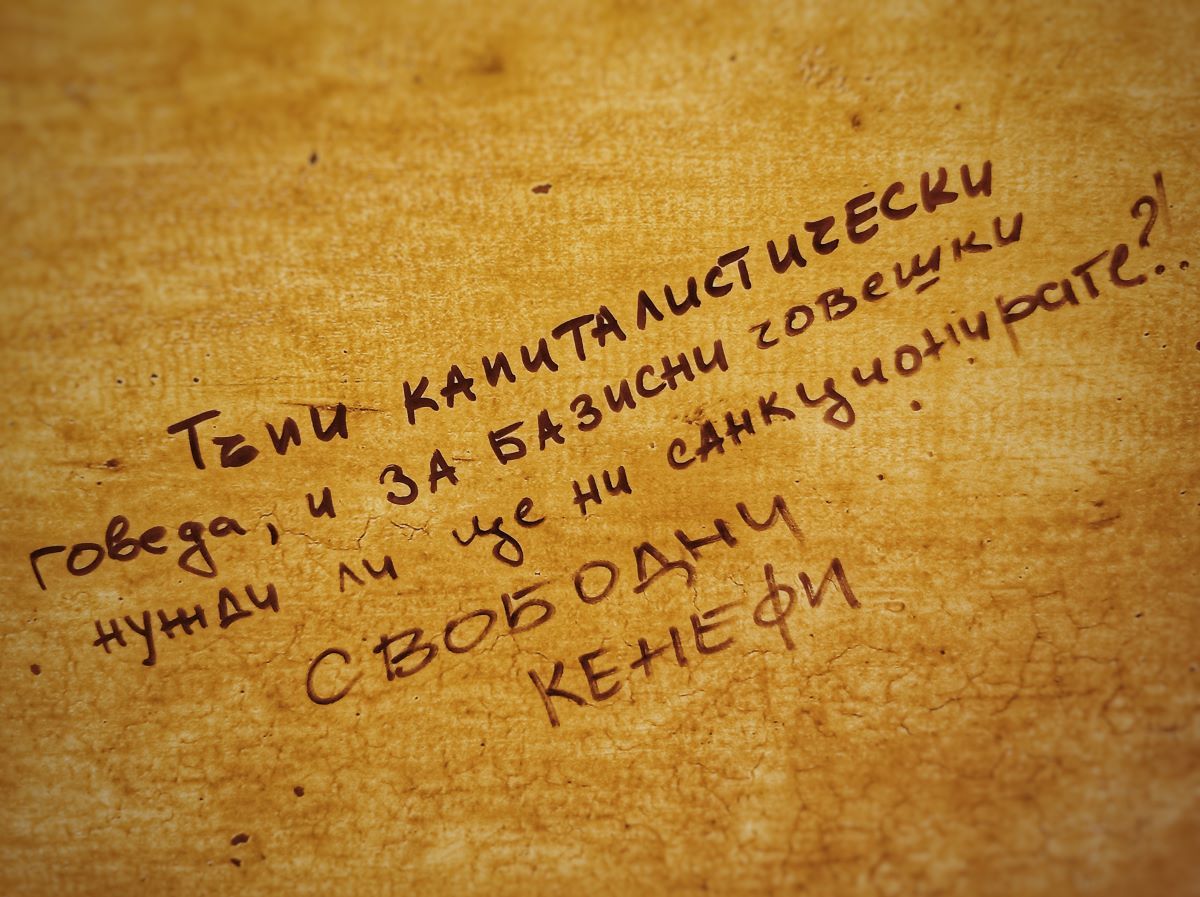 Тъпи КАПИТАЛИСТИЧЕСКИ
говеда, и ЗА БАЗИСНИ човешки
нужди ли ще ни САНКЦИОНИРАТЕ?!..
СВОБОДНИ
КЕНЕФИ